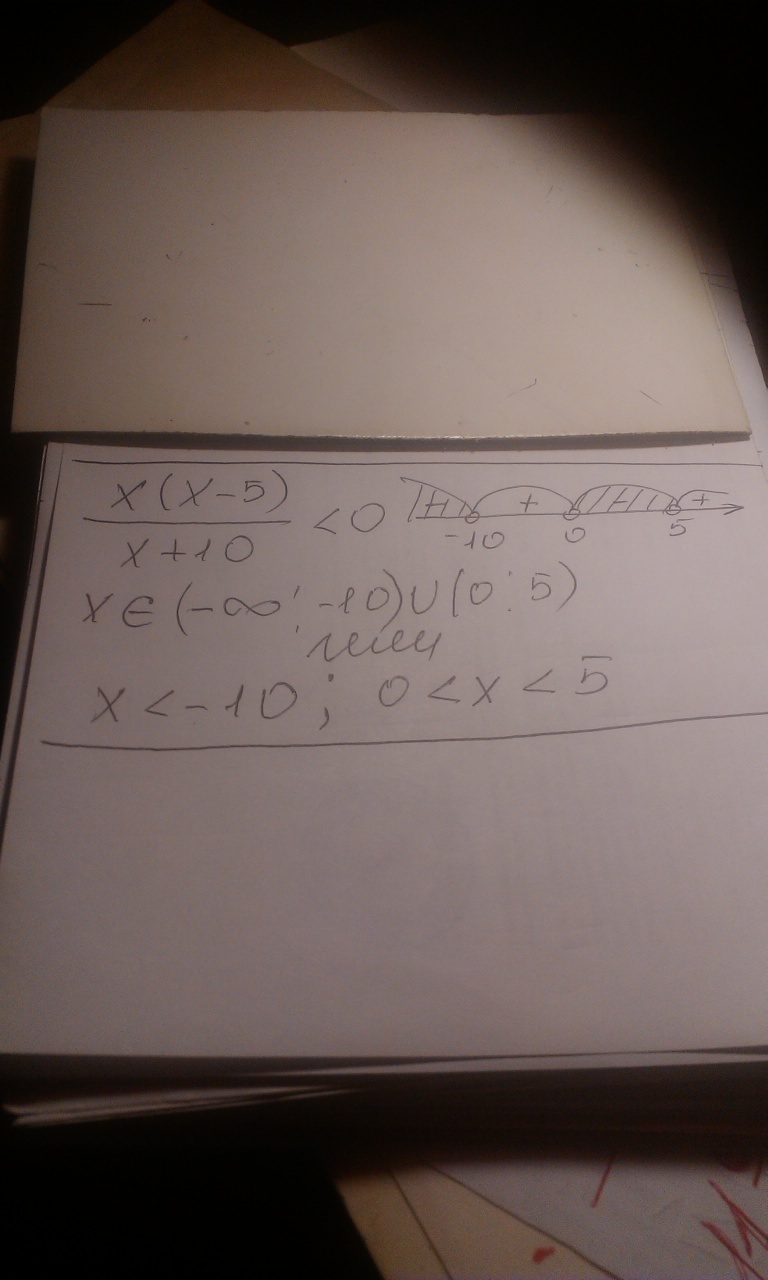 x(x-5)
x+10
<0
- + - +
-10 0 5
x∈(-∞; -10)∪(0; 5)
или
x<-10; 0<x<5